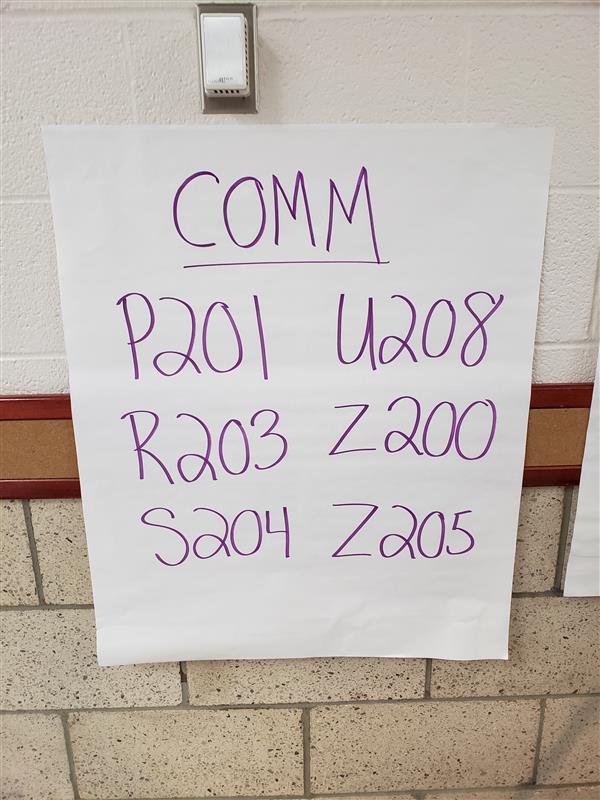 COMM
P201 U208
R203 Z200
S204 Z205